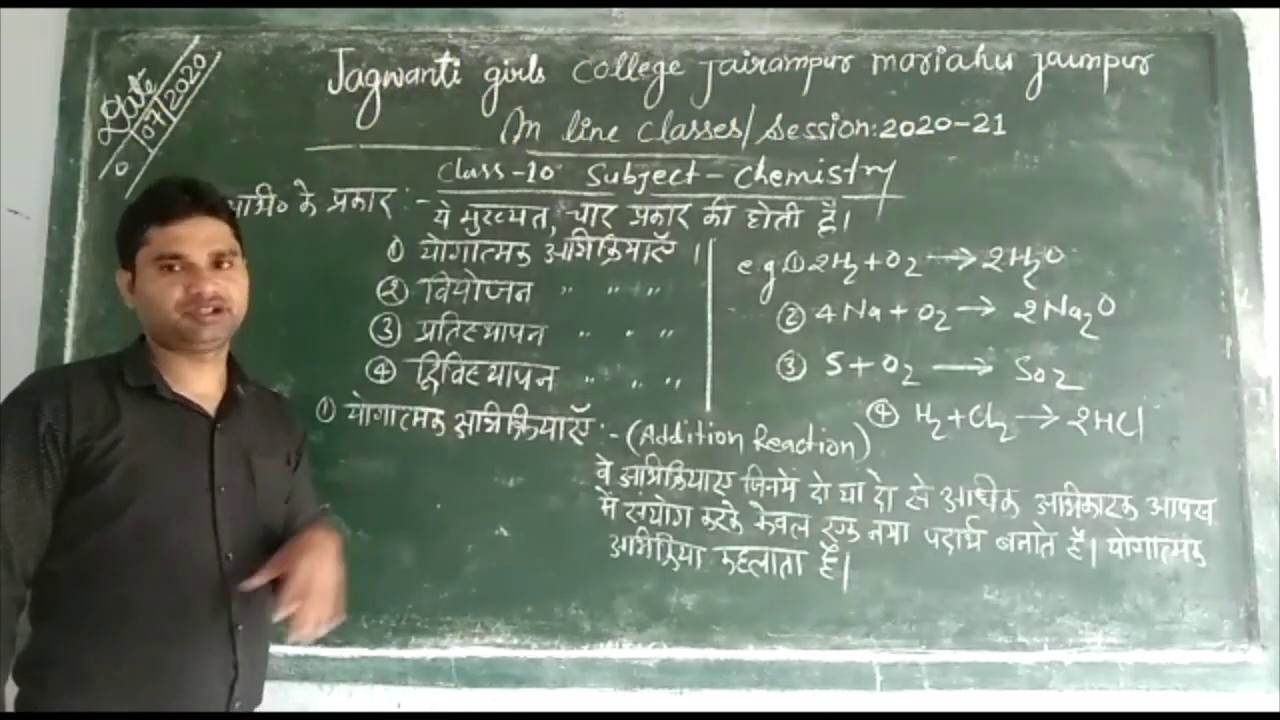 Date
0 07 2020
Jagwanti girls college jairampur mariahu jaunpur
On line classes/Session:2020-21
Class-10 Subject-Chemistry
अभि० के प्रकार :-
ये मुख्यत, चार प्रकार की होती है।
① योगात्मक अभिक्रियाएँ।
② वियोजन " " "
③ प्रतिस्थापन " " "
④ द्विविस्थापन " " "
e.g ① 2H₂+O₂ → 2H₂O
② 4Na+O₂ → 2Na₂O
③ S+O₂ → SO₂
④ H₂+Cl₂ → 2HCl
① योगात्मक अभिक्रियाएँ :- (Addition Reaction)
वे अभिक्रियाए जिनमें दो या दो से अधिक अभिकारक आपस
में संयोग करके केवल एक नया पदार्थ बनाते हैं। योगात्मक
अभिक्रिया कहलाता है।